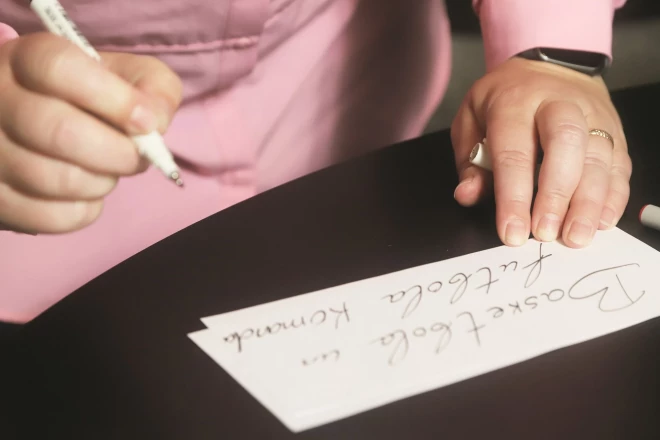 Basketbola un
futbola Komanda